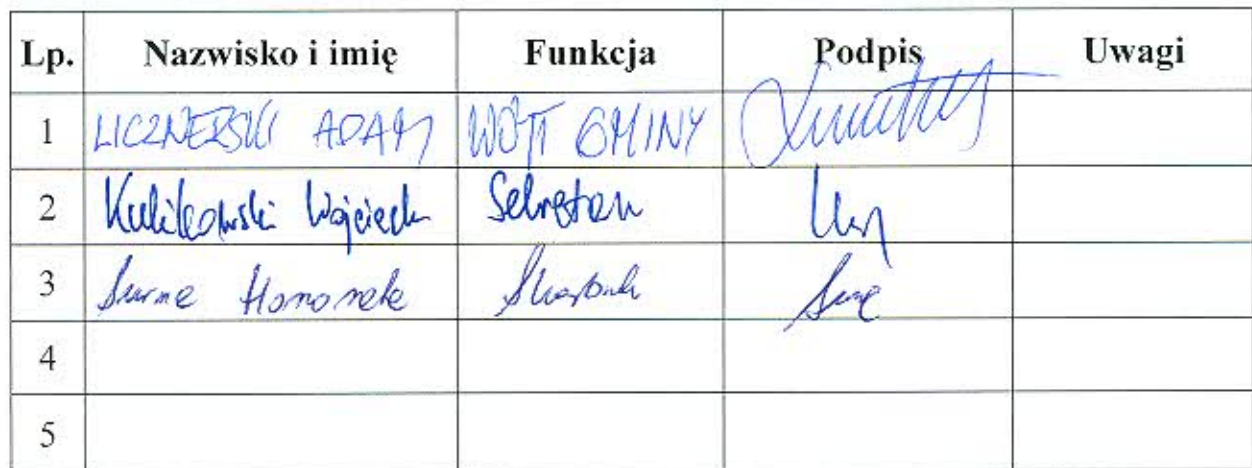 Lp. Nazwisko i imię Funkcja Podpis Uwagi
1 LICZNERSKI ADAM WÓJT GMINY
2 Kulikowski Wojciech Sekretarz
3 Skarbnik
4
5